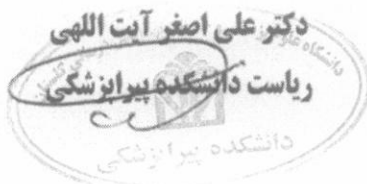 دکتر علی اصغر آیت اللهی
ریاست دانشکده پیراپزشکی
دانشکده پیراپزشکی